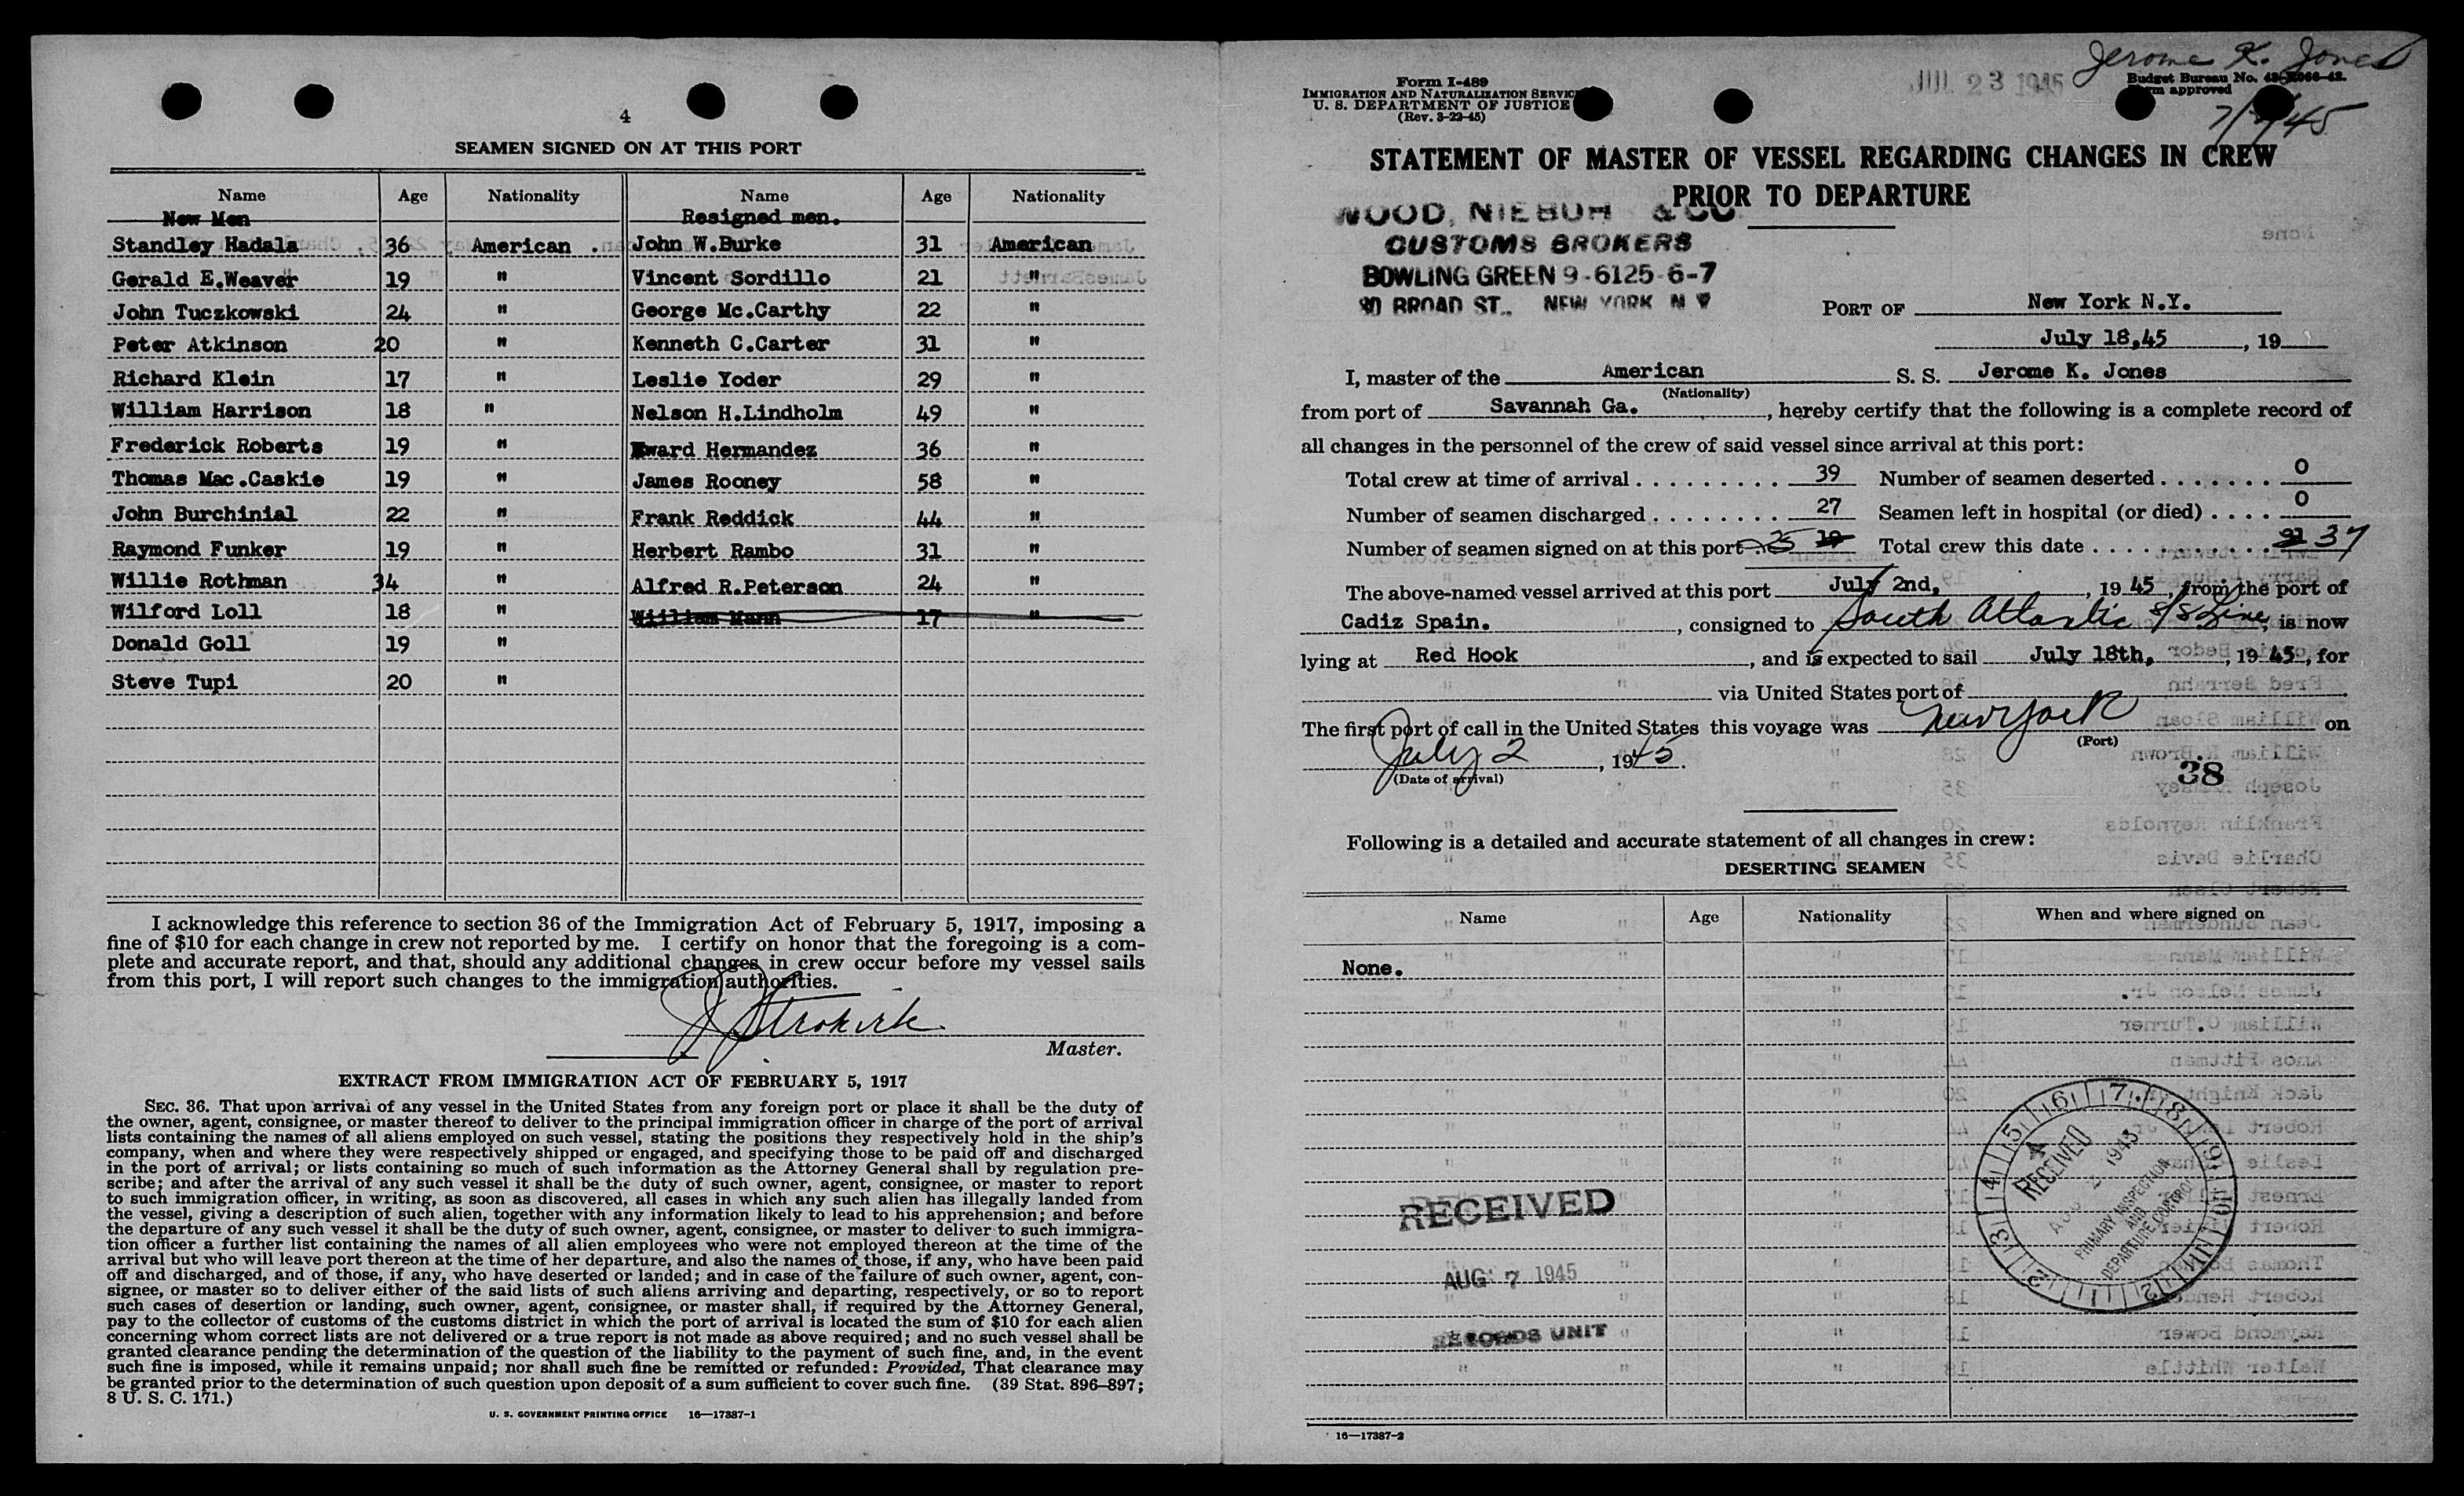 4
SEAMEN SIGNED ON AT THIS PORT
Name Age Nationality Name Age Nationality
New Men Resigned men.
Standley Hadala 36 American John W.Burke 31 American
Gerald E.Weaver 19 " Vincent Sordillo 21 "
John Tuczkowski 24 " George Mc.Carthy 22 "
Peter Atkinson 20 " Kenneth C.Carter 31 "
Richard Klein 17 " Leslie Yoder 29 "
William Harrison 18 " Nelson H.Lindholm 49 "
Frederick Roberts 19 " Edward Hermandez 36 "
Thomas Mac.Caskie 19 " James Rooney 58 "
John Burchinial 22 " Frank Reddick 44 "
Raymond Funker 19 " Herbert Rambo 31 "
Willie Rothman 34 " Alfred R.Peterson 24 "
Wilford Loll 18 " William Mann 17 "
Donald Goll 19 "
Steve Tupi 20 "
I acknowledge this reference to section 36 of the Immigration Act of February 5, 1917, imposing a
fine of $10 for each change in crew not reported by me. I certify on honor that the foregoing is a com-
plete and accurate report, and that, should any additional changes in crew occur before my vessel sails
from this port, I will report such changes to the immigration authorities.
Master.
EXTRACT FROM IMMIGRATION ACT OF FEBRUARY 5, 1917
SEC. 36. That upon arrival of any vessel in the United States from any foreign port or place it shall be the duty of
the owner, agent, consignee, or master thereof to deliver to the principal immigration officer in charge of the port of arrival
lists containing the names of all aliens employed on such vessel, stating the positions they respectively hold in the ship's
company, when and where they were respectively shipped or engaged, and specifying those to be paid off and discharged
in the port of arrival; or lists containing so much of such information as the Attorney General shall by regulation pre-
scribe; and after the arrival of any such vessel it shall be the duty of such owner, agent, consignee, or master to report
to such immigration officer, in writing, as soon as discovered, all cases in which any such alien has illegally landed from
the vessel, giving a description of such alien, together with any information likely to lead to his apprehension; and before
the departure of any such vessel it shall be the duty of such owner, agent, consignee, or master to deliver to such immigra-
tion officer a further list containing the names of all alien employees who were not employed thereon at the time of the
arrival but who will leave port thereon at the time of her departure, and also the names of those, if any, who have been paid
off and discharged, and of those, if any, who have deserted or landed; and in case of the failure of such owner, agent, con-
signee, or master so to deliver either of the said lists of such aliens arriving and departing, respectively, or so to report
such cases of desertion or landing, such owner, agent, consignee, or master shall, if required by the Attorney General,
pay to the collector of customs of the customs district in which the port of arrival is located the sum of $10 for each alien
concerning whom correct lists are not delivered or a true report is not made as above required; and no such vessel shall be
granted clearance pending the determination of the question of the liability to the payment of such fine, and, in the event
such fine is imposed, while it remains unpaid; nor shall such fine be remitted or refunded: Provided, That clearance may
be granted prior to the determination of such question upon deposit of a sum sufficient to cover such fine. (39 Stat. 896-897;
8 U. S. C. 171.)
U. S. GOVERNMENT PRINTING OFFICE 16—17387-1
Jerome K. Jones
Form I-489
IMMIGRATION AND NATURALIZATION SERVICE
U. S. DEPARTMENT OF JUSTICE
(Rev. 3-22-45)
JUL 23 1945
Budget Bureau No.
Form approved
STATEMENT OF MASTER OF VESSEL REGARDING CHANGES IN CREW
PRIOR TO DEPARTURE
WOOD, NIEBUH & CO
CUSTOMS BROKERS
BOWLING GREEN 9-6125-6-7
80 BROAD ST., NEW YORK N Y
PORT OF New York N.Y.
July 18,45, 19
I, master of the American S. S. Jerome K. Jones
(Nationality)
from port of Savannah Ga., hereby certify that the following is a complete record of
all changes in the personnel of the crew of said vessel since arrival at this port:
Total crew at time of arrival 39 Number of seamen deserted 0
Number of seamen discharged 27 Seamen left in hospital (or died) 0
Number of seamen signed on at this port 25 Total crew this date 37
The above-named vessel arrived at this port July 2nd, 1945, from the port of
Cadiz Spain., consigned to South Atlantic S/S Line, is now
lying at Red Hook, and is expected to sail July 18th, 1945, for
via United States port of
The first port of call in the United States this voyage was New York on
(Port)
July 2, 1945.
(Date of arrival)
38
Following is a detailed and accurate statement of all changes in crew:
DESERTING SEAMEN
Name Age Nationality When and where signed on
None.
RECEIVED
AUG 7 1945
RECORDS UNIT
RECEIVED
PRIMARY INSPECTION
AND
DEPARTURE CONTROL
16—17387-2